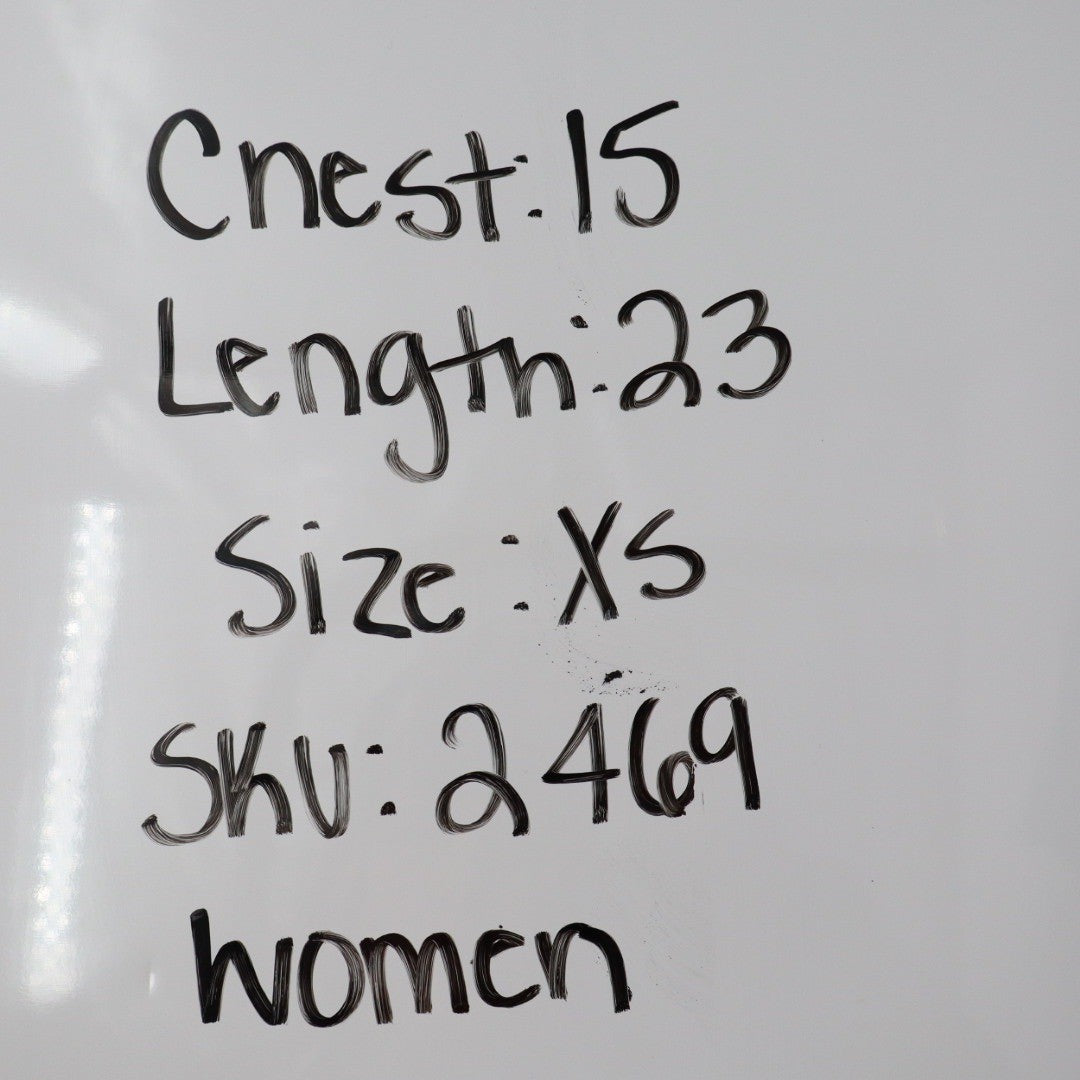 Chest: 15
Length: 23
Size: XS
SKU: 2469
Women